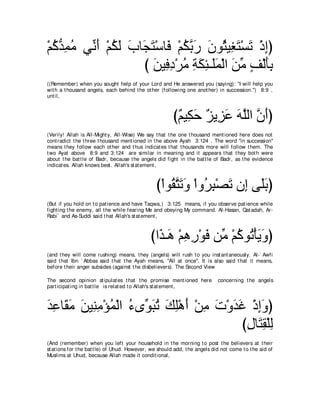 إِذْ تَسْتَغِيثُونَ رَبَّكُمْ فَاسْتَجَابَ لَكُمْ أَنِّي مُمِدُّكُمْ)
بِأَلْفٍ مِّنَ الْمَلَـئِكَةِ مُرْدِفِينَ )
((Remember) when you sought help of your Lord and He answered you (saying): "I will help you
with a thousand angels, each behind the other (following one another) in succession.") 8:9 ,
until,
(أَنَّ اللَّهَ عَزِيزٌ حَكِيمٌ)
(Verily! Allah is All-Mighty, All-Wise) We say that the one thousand mentioned here does not
contradict the three thousand mentioned in the above Ayah 3:124 . The word "in succession"
means they follow each other and thus indicates that thousands more will follow them. The
two Ayat above 8:9 and 3:124 are similar in meaning and it appears that they both were
about the battle of Badr, because the angels did fight in the battle of Badr, as the evidence
indicates. Allah knows best. Allah's statement,
(بَلَى إِن تَصْبِرُواْ وَتَتَّقُواْ)
(But if you hold on to patience and have Taqwa,) 3:125 means, if you observe patience while
fighting the enemy, all the while fearing Me and obeying My command. Al-Hasan, Qatadah, Ar-
Rabi` and As-Suddi said that Allah's statement,
(وَيَأْتُوكُمْ مِّن فَوْرِهِمْ هَـذَا)
(and they will come rushing) means, they (angels) will rush to you instantaneously. Al-`Awfi
said that Ibn `Abbas said that the Ayah means, "All at once". It is also said that it means,
before their anger subsides (against the disbelievers). The Second View
The second opinion stipulates that the promise mentioned here concerning the angels
participating in battle is related to Allah's statement,
(وَإِذْ غَدَوْتَ مِنْ أَهْلِكَ تُبَوِّىءُ الْمُؤْمِنِينَ مَقَاعِدَ
لِلْقِتَالِ)
(And (remember) when you left your household in the morning to post the believers at their
stations for the battle) of Uhud. However, we should add, the angels did not come to the aid of
Muslims at Uhud, because Allah made it conditional,